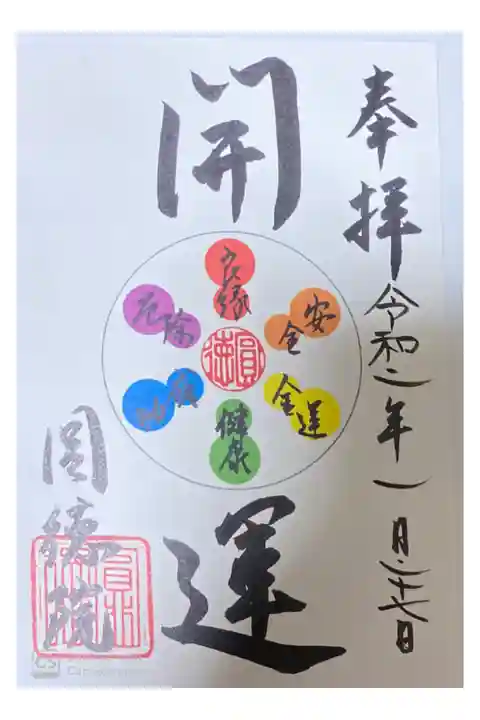 奉拝
令和二年一月二十七日
開運
良縁
安全
金運
健康
厄除
圓徳
圓徳院
CS